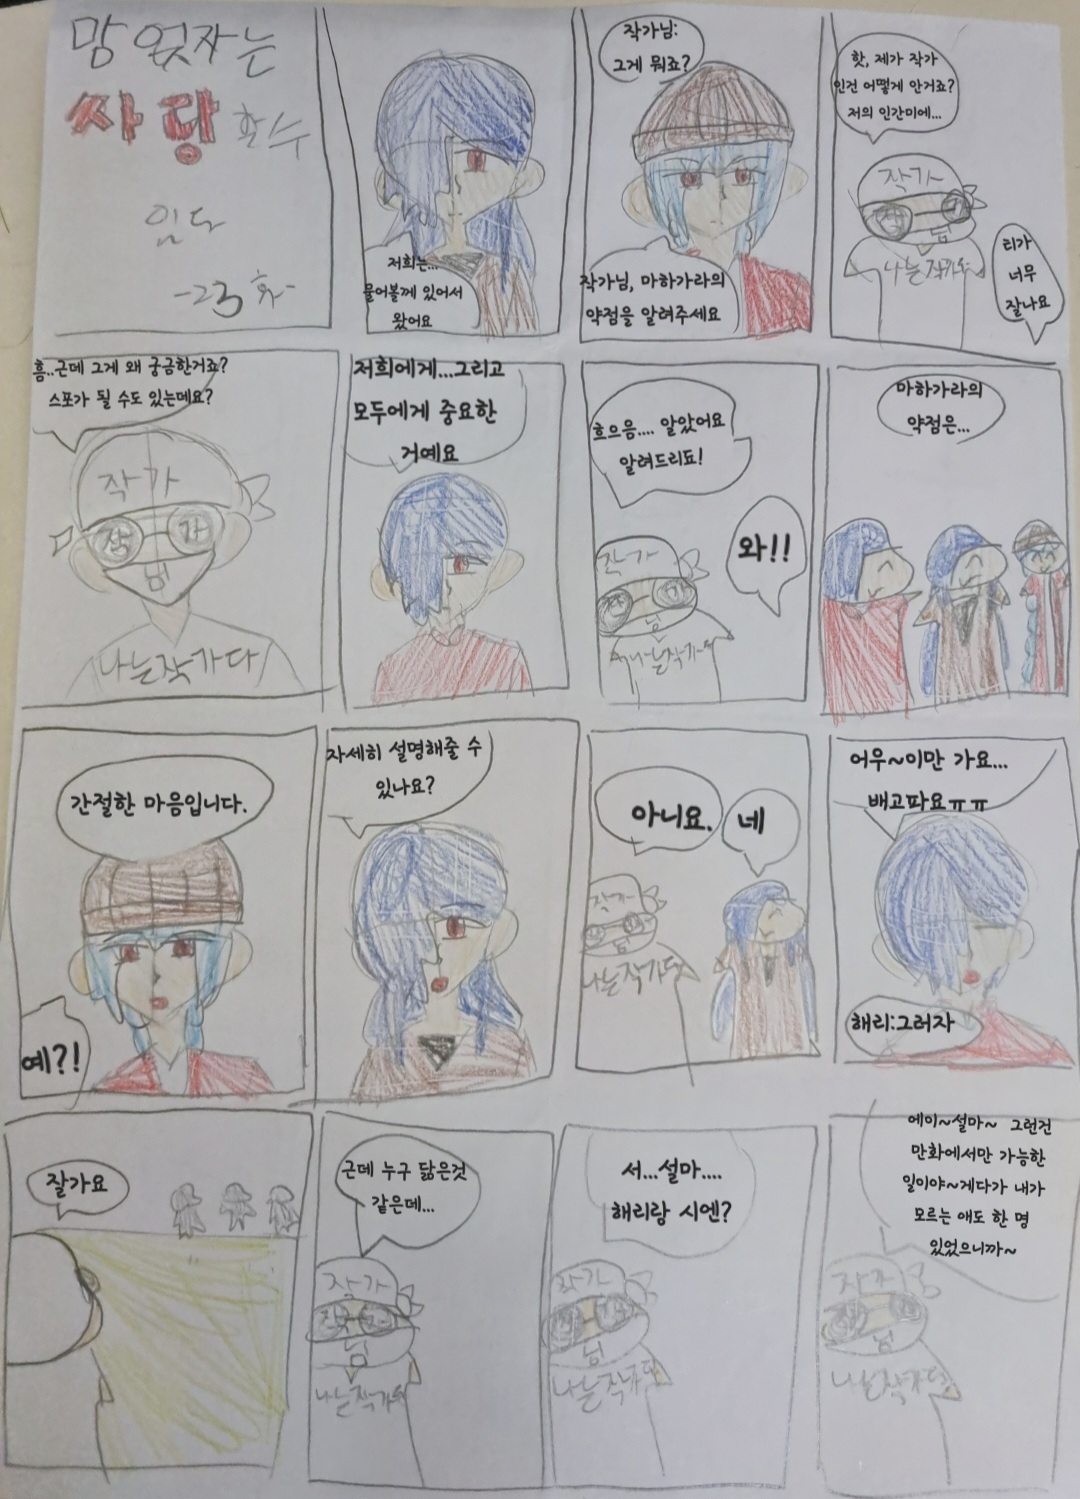 맘 웞자는
싸탕 할수
있다
-23화-
저희는...
물어볼께 있어서
왔어요
작가님:
그게 뭐죠?
작가님, 마하가라의
약점을 알려주세요
핫, 제가 작가
인건 어떻게 안거죠?
저의 인간미에...
작가
나는작가다
리가
너무
잘나요
흠..근데 그게 왜 궁금한거죠?
스포가 될 수도 있는데요?
작가
작 가
님
나는작가다
저희에게...그리고
모두에게 중요한
거예요
흐으음.... 알았어요
알려드리됴!
와!!
작가
님
나는작가다
마하가라의
약점은...
간절한 마음입니다.
예?!
자세히 설명해줄 수
있나요?
아니요.
네
작가
님
나는작가다
어우~이만 가요...
배고파요ㅠㅠ
해리:그러자
잘가요
근데 누구 닮은것
같은데...
작가
님
나는작가다
서...설마....
해리랑 시엔?
작가
님
나는작가다
에이~설마~ 그런건
만화에서만 가능한
일이야~게다가 내가
모르는 애도 한 명
있었으니까~
작가
님
나는작가다